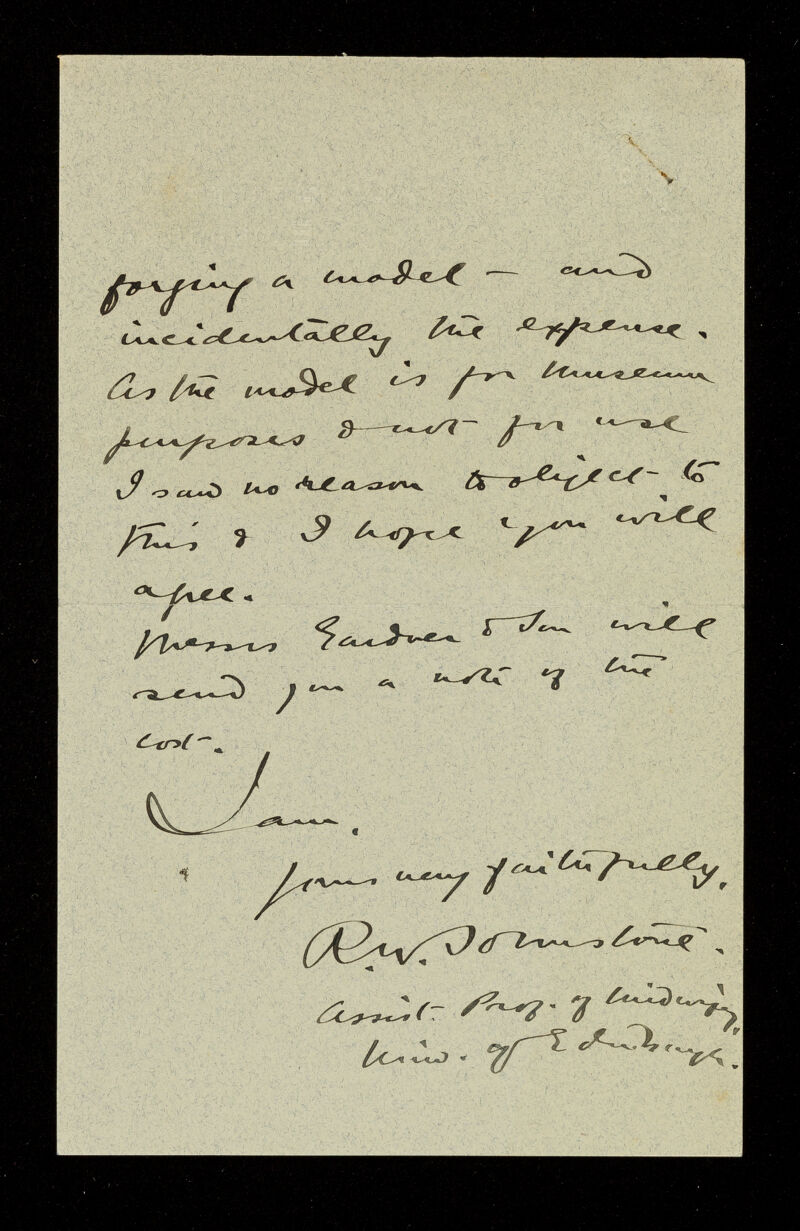 forging a model – and
incidentally the expense.
As the model is for Museum
purposes & not for use
I saw no reason to object to
this & I hope you will
agree.
Messrs Gardner & Son will
send you a note of the
cost.
I am,
Yours very faithfully,
R.W. Johnstone.
Assist. Prof. of Midwifery,
Univ. of Edinburgh.